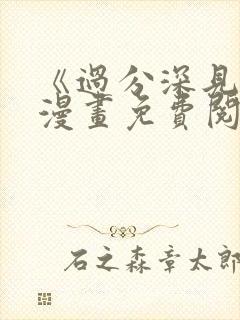 《過分深見
漫畫免費閱
石之森章太郎